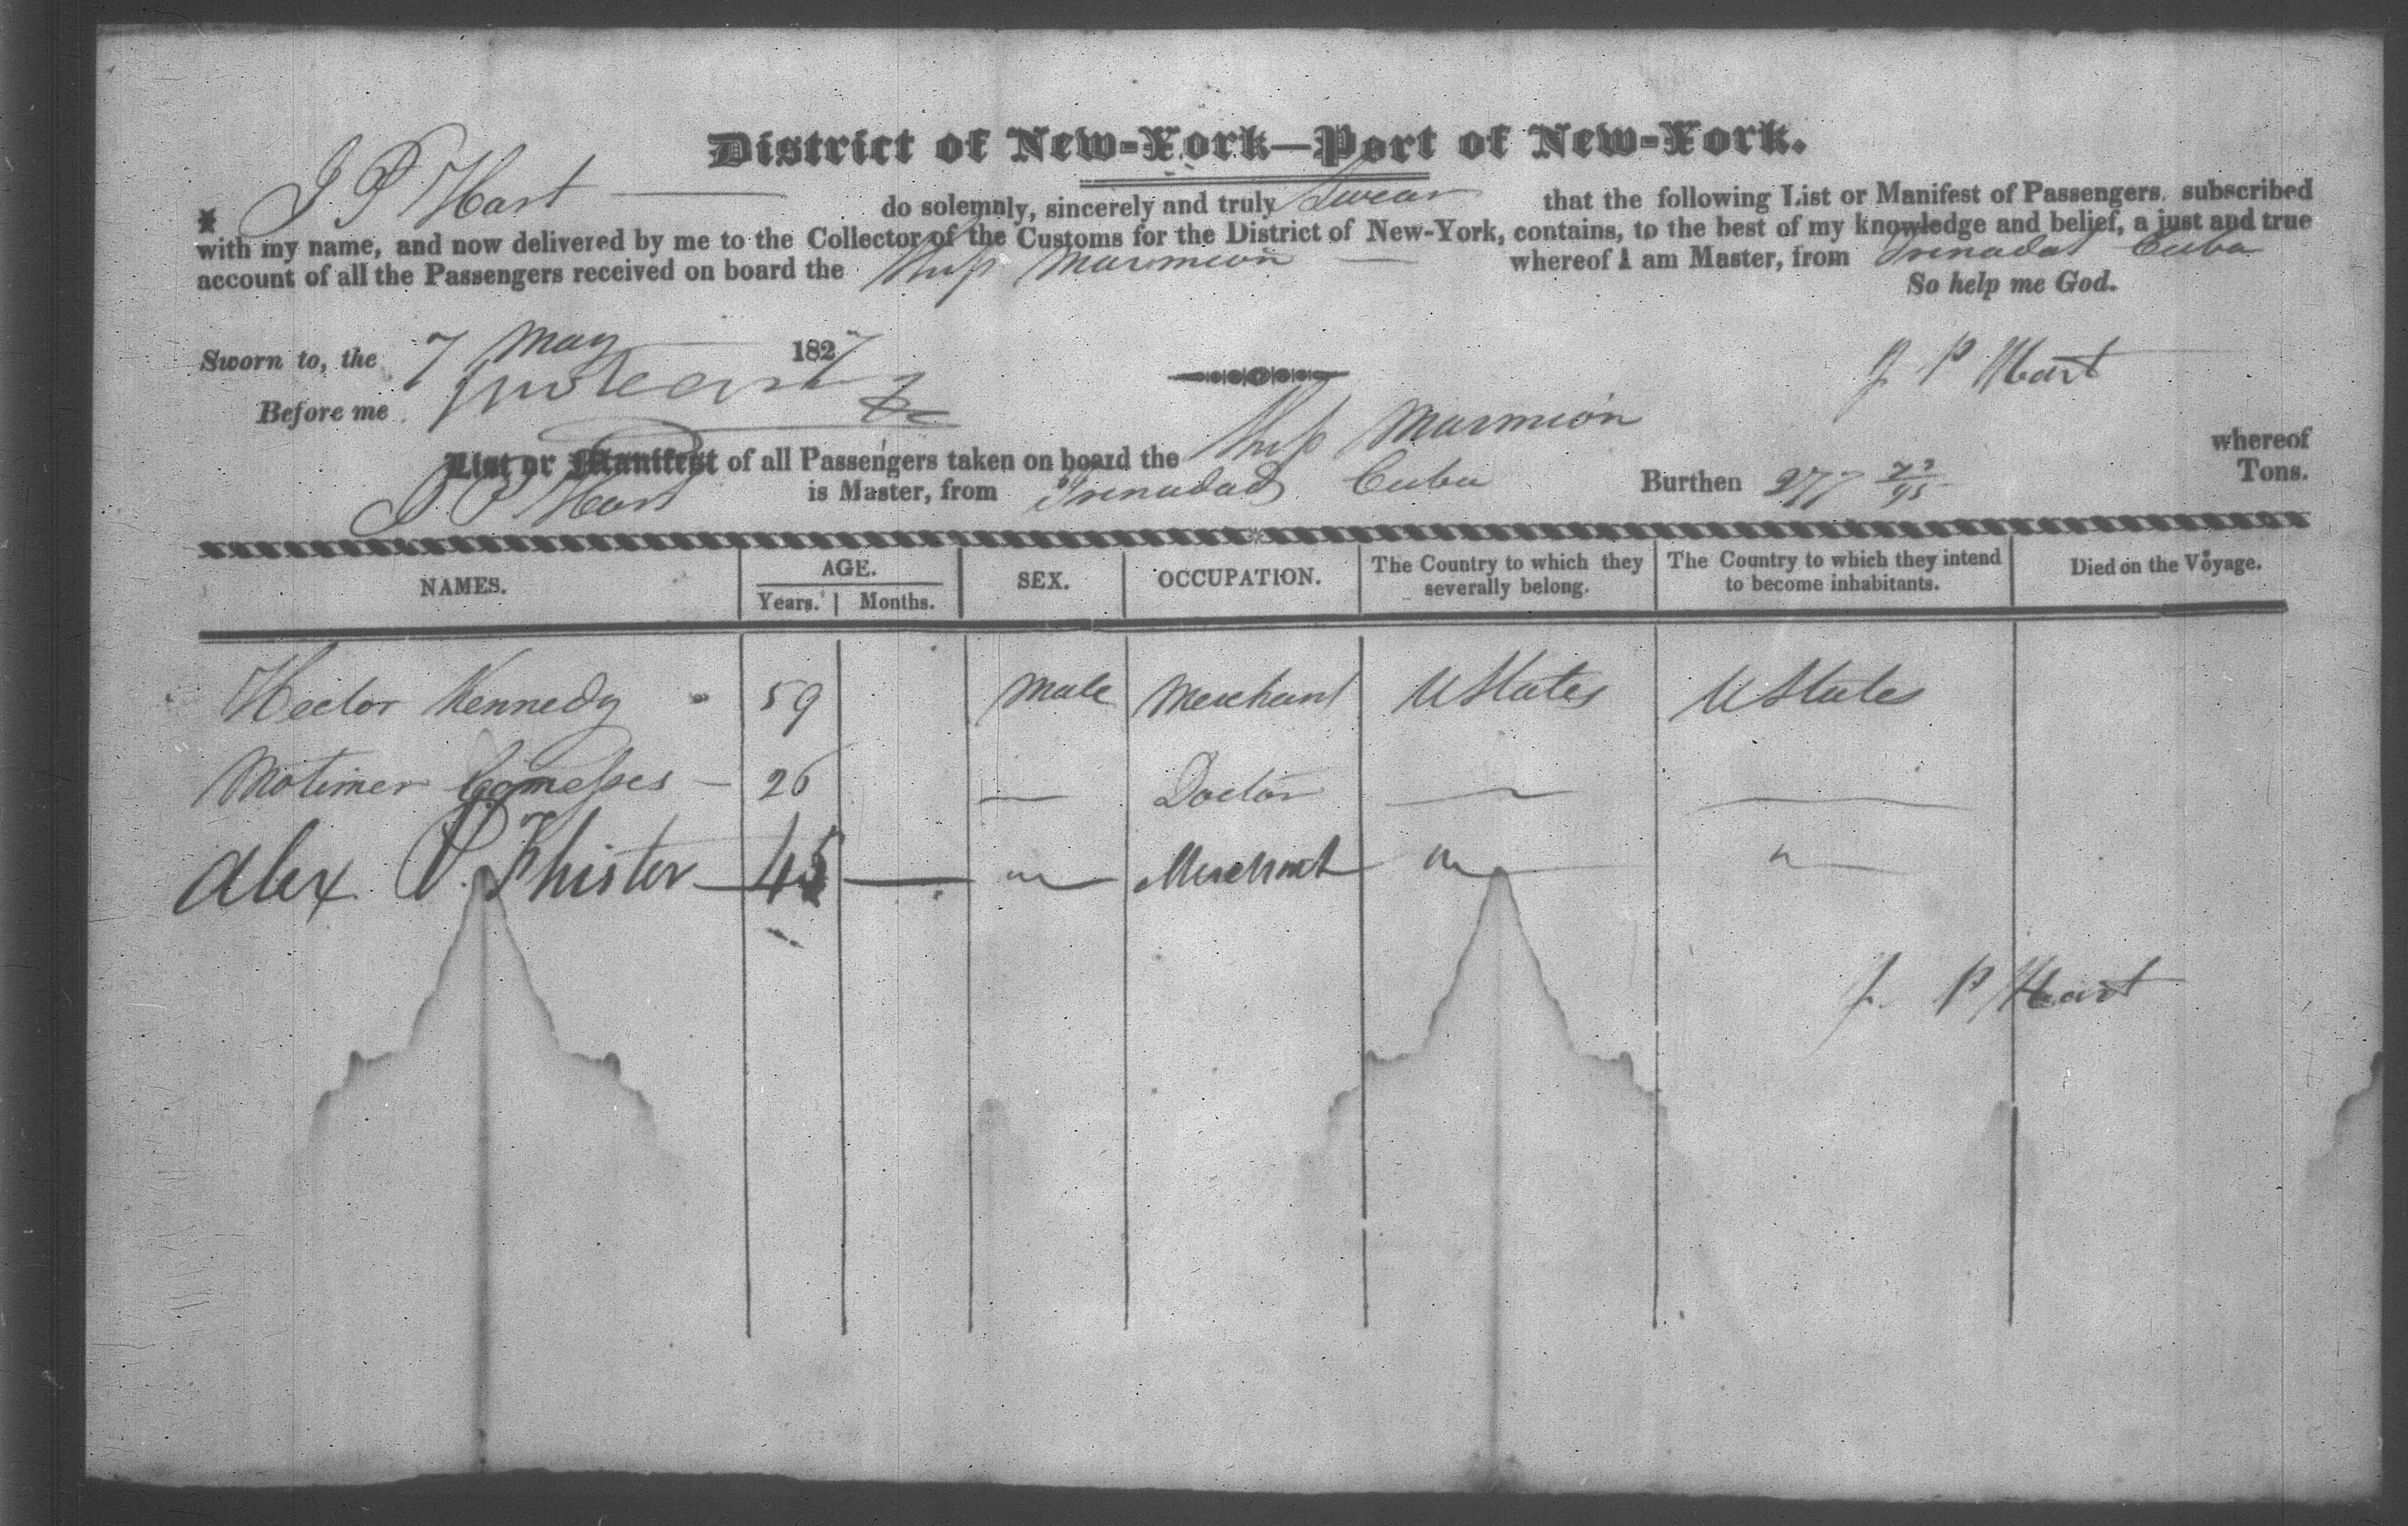 District of New-York—Port of New-York.
I J P Hart do solemnly, sincerely and truly Swear that the following List or Manifest of Passengers, subscribed
with my name, and now delivered by me to the Collector of the Customs for the District of New-York, contains, to the best of my knowledge and belief, a just and true
account of all the Passengers received on board the Ship Marmion whereof I am Master, from Trinadad Cuba
So help me God.
Sworn to, the 7 May 1827
J P Hart
Before me
List or Manifest of all Passengers taken on board the Ship Marmion whereof
J P Hart is Master, from Trinadad Cuba Burthen 277 73/95 Tons.
NAMES. AGE. Years. Months. SEX. OCCUPATION. The Country to which they severally belong. The Country to which they intend to become inhabitants. Died on the Voyage.
Hector Kennedy 59 Male Merchant U States U States
Motimer 26 — Doctor — —
Alex P. Phister — 45 — " Merchant " "
J. P Hart